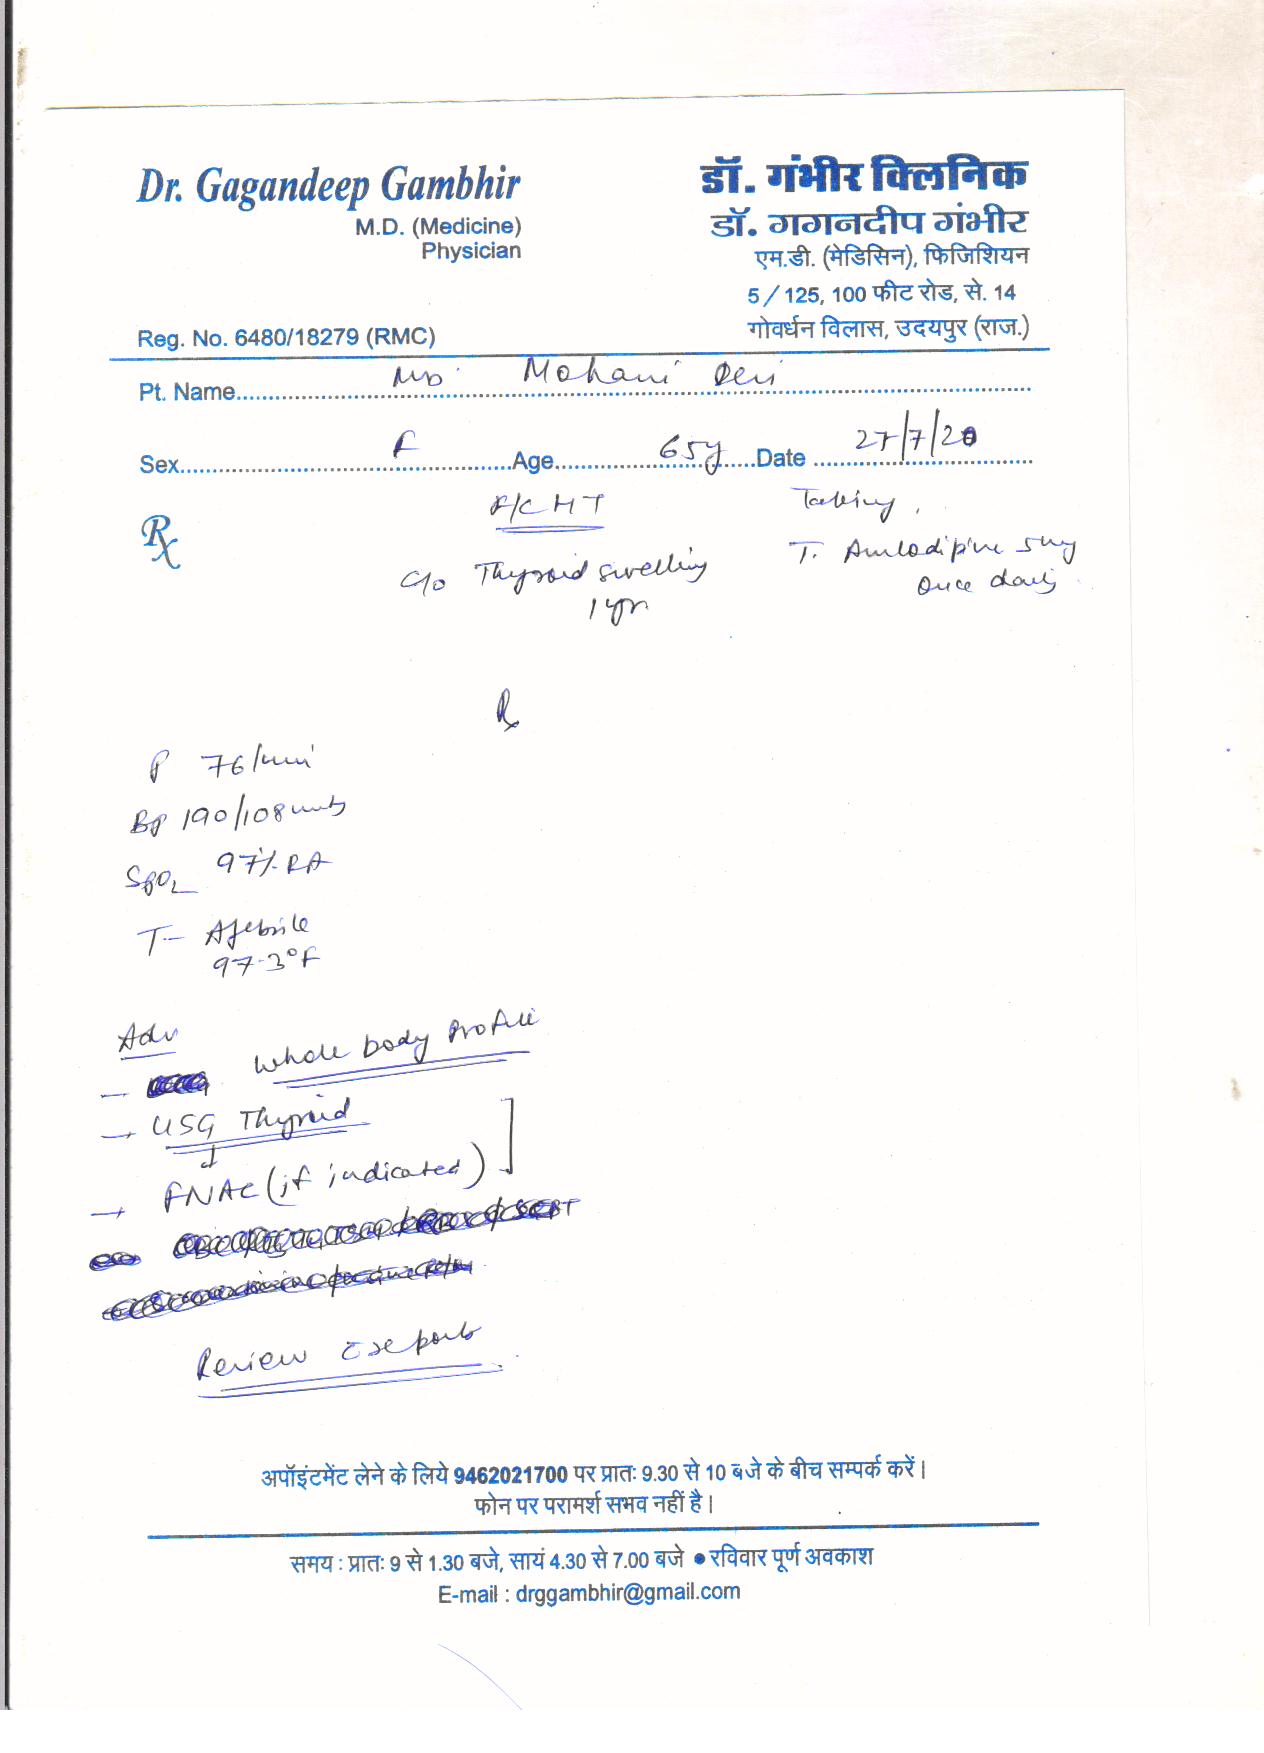 Dr. Gagandeep Gambhir
M.D. (Medicine)
Physician
Reg. No. 6480/18279 (RMC)
डॉ. गंभीर क्लिनिक
डॉ. गगनदीप गंभीर
एम.डी. (मेडिसिन), फिजिशियन
5/125, 100 फीट रोड, से. 14
गोवर्धन विलास, उदयपुर (राज.)
Pt. Name Mohani Devi
Sex F Age 65y Date 27/7/20
Rx
K/C HT
C/o Thyroid swelling
1 yr
Taking
T. Amlodipine 5mg
Once daily
Rx
P 76/min
BP 190/108
SpO2 97% RA
T- Afebrile
97.3°F
Adv
Whole body Profile
→ USG Thyroid
→ FNAC (if indicated)
Review c reports
अपॉइंटमेंट लेने के लिये 9462021700 पर प्रातः 9.30 से 10 बजे के बीच सम्पर्क करें।
फोन पर परामर्श सभव नहीं है।
समय : प्रातः 9 से 1.30 बजे, सायं 4.30 से 7.00 बजे ● रविवार पूर्ण अवकाश
E-mail : drggambhir@gmail.com